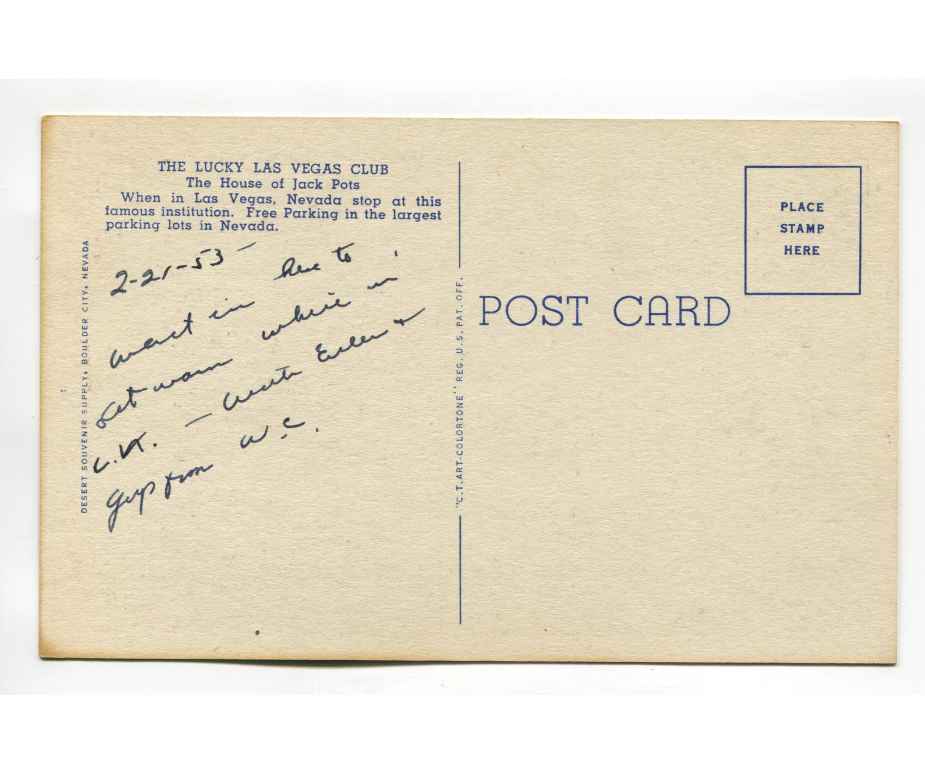 THE LUCKY LAS VEGAS CLUB
The House of Jack Pots
When in Las Vegas, Nevada stop at this
famous institution. Free Parking in the largest
parking lots in Nevada.
2-21-53 -
in here to
warm while in
L.V. - with &
from W.C.
DESERT SOUVENIR SUPPLY, BOULDER CITY, NEVADA
"C.T. ART-COLORTONE" REG. U.S. PAT. OFF.
POST CARD
PLACE
STAMP
HERE